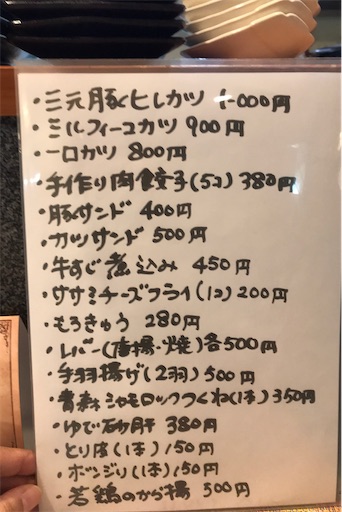 ・三元豚ヒレカツ 1000円
・ミルフィーユカツ 900円
・一口カツ 800円
・手作り肉餃子(5コ) 380円
・豚サンド 400円
・カツサンド 500円
・牛すじ煮込み 450円
・ササミチーズフライ(1コ) 200円
・もろきゅう 280円
・レバー(唐揚・焼)各500円
・手羽揚げ(2羽) 500円
・青森シャモロックつくね(1本) 350円
・ゆで砂肝 380円
・とり皮(1本) 150円
・ボンジリ(1本) 150円
・若鶏のから揚 500円